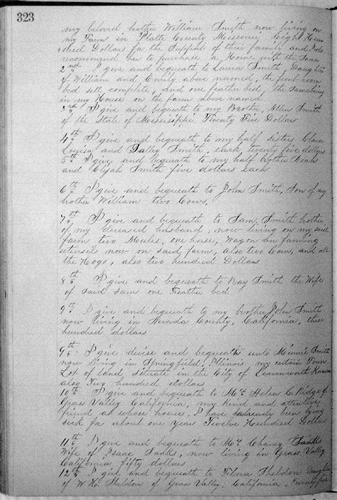 323
my beloved brother William Smith now living on
my Farm in Platte County Missouri, Eight Hun
dred Dollars for the support of their family and I do
recommend him to purchase a Home with the same
2nd I give and bequeath to Smith, Daughter
of William and Emily above named, the
bed sett complete, and one feather bed, the same being
in my House on the farm above named.
3rd I give and bequeath to my Brother, Allen Smith
of the State of Mississippi Twenty Five Dollars
4th I give and bequeath to my half sisters Clara
Louisa and Sally Smith, each twenty five dollars
5th I give and bequeath to my half brother Noah
and Elijah Smith five dollars Each
6th I give and bequeath to John Smith, Son of my
brother William two Cows,
7th I give and bequeath to Sam Smith brother
of my deceased husband, now living on my said
farm two Mules, one horse, Wagon and farming
utensils now on said farm, also two Cows, and all
the Hogs, also two hundred Dollars
8th I give and bequeath to May Smith the Wife
of said Sam one Feather bed
9th I give and bequeath to my brother John Smith
now living in Nevada County, California, three
hundred dollars
9th I give devise and bequeath unto Minnie Smith
now living in Springfield, Illinois, my certain Town
Lot of land situate in the City of Leavenworth Kansas
also Five hundred dollars
10th I give and bequeath to Mrs Helen C.
Grass Valley California, my kind and attentive
friend at whose house I have been living
sick for about one Year Twelve Hundred Dollars
11th I give and bequeath to Mrs
Wife of Isaac now living in Grass Valley
California fifty dollars
12th I give and bequeath to Sheldon Daughter
of W. H. Sheldon of Grass Valley, California, Twenty five